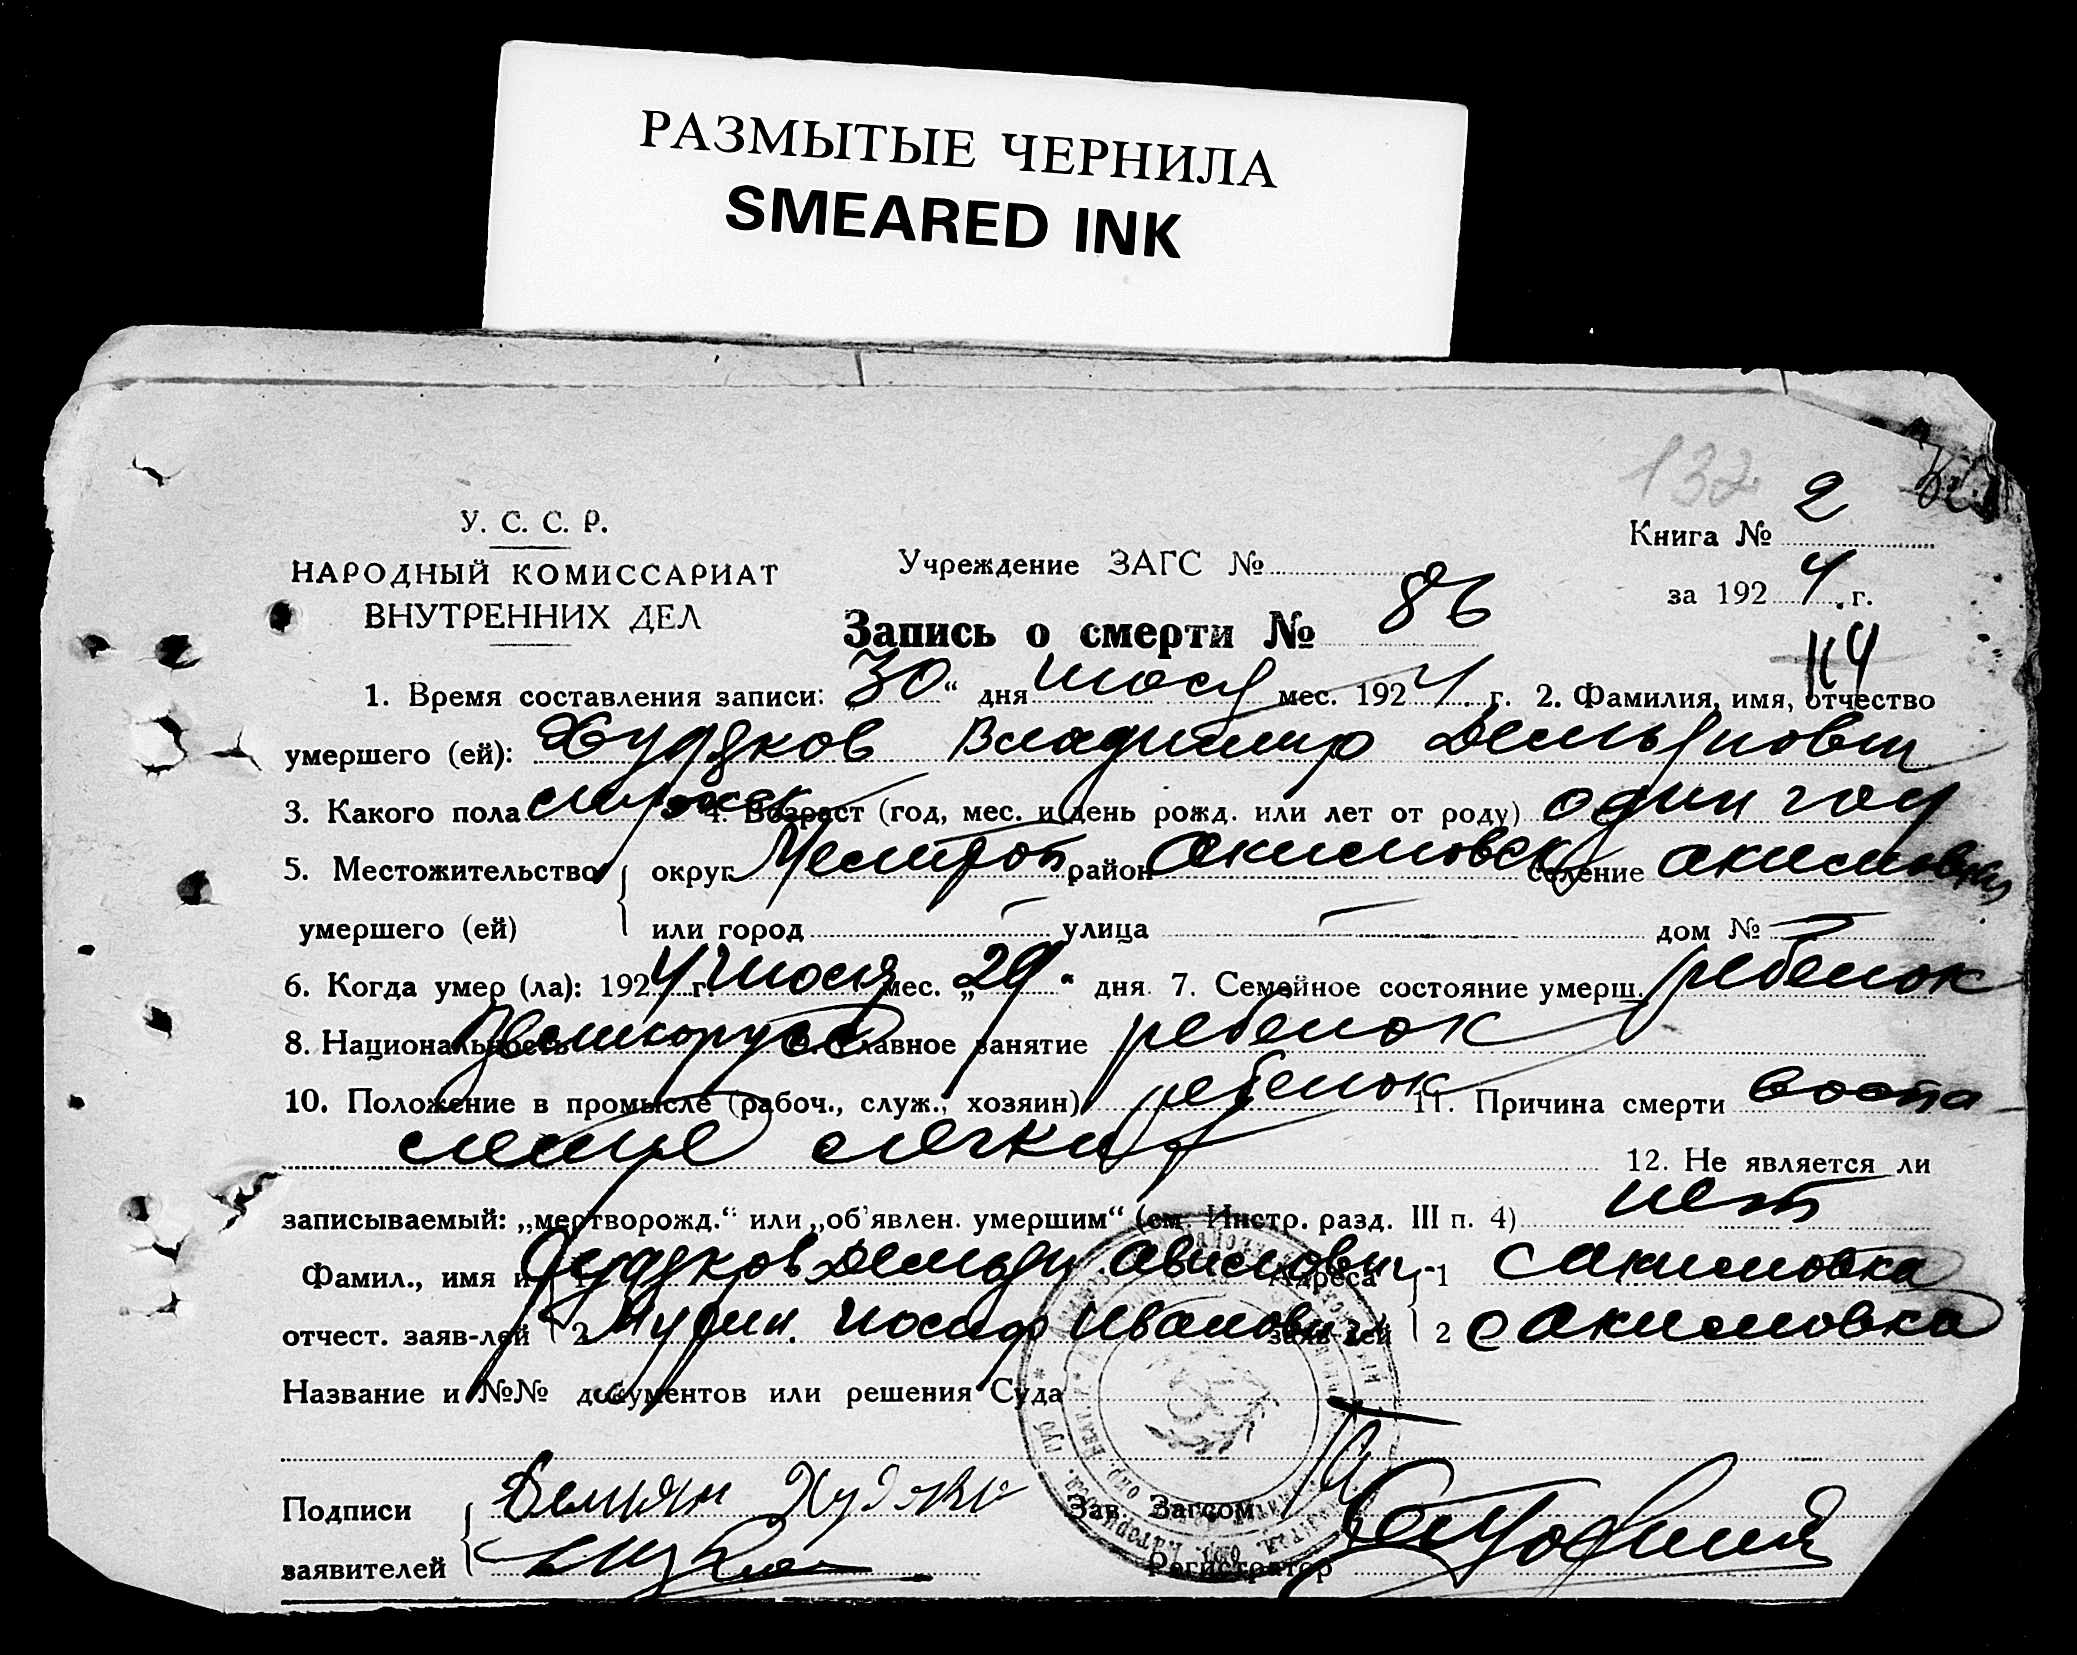 РАЗМЫТЫЕ ЧЕРНИЛА
SMEARED INK
132
Книга № 2
У. С. С. Р.
НАРОДНЫЙ КОМИССАРИАТ
ВНУТРЕННИХ ДЕЛ
Учреждение ЗАГС №
за 1924 г.
Запись о смерти № 86
1. Время составления записи: „30“ дня июля мес. 1924 г. 2. Фамилия, имя, отчество
умершего (ей): Худяков Владимир Демьянович
3. Какого пола мужск 4. Возраст (год, мес. и день рожд. или лет от роду) один год
5. Местожительство округ Мелитоп район Акимовск селение Акимовка
умершего (ей) или город — улица — дом № —
6. Когда умер (ла): 1924 г. июля мес. „29“ дня 7. Семейное состояние умерш. ребенок
8. Национальность великорусс 9. Главное занятие ребенок
10. Положение в промысле (рабоч., служ., хозяин) ребенок 11. Причина смерти воспа
ление легких 12. Не является ли
записываемый: „мертворожд.“ или „об'явлен. умершим“ (см. Инстр. разд. III п. 4) нет
Фамил., имя и 1 Худяков Демьян Адреса 1 с Акимовка
отчест. заяв-лей 2 Иосиф Иванович заяв-лей 2 с Акимовка
Название и №№ документов или решения Суда
Подписи Демьян Худяков Зав. Загсом
заявителей Регистратор